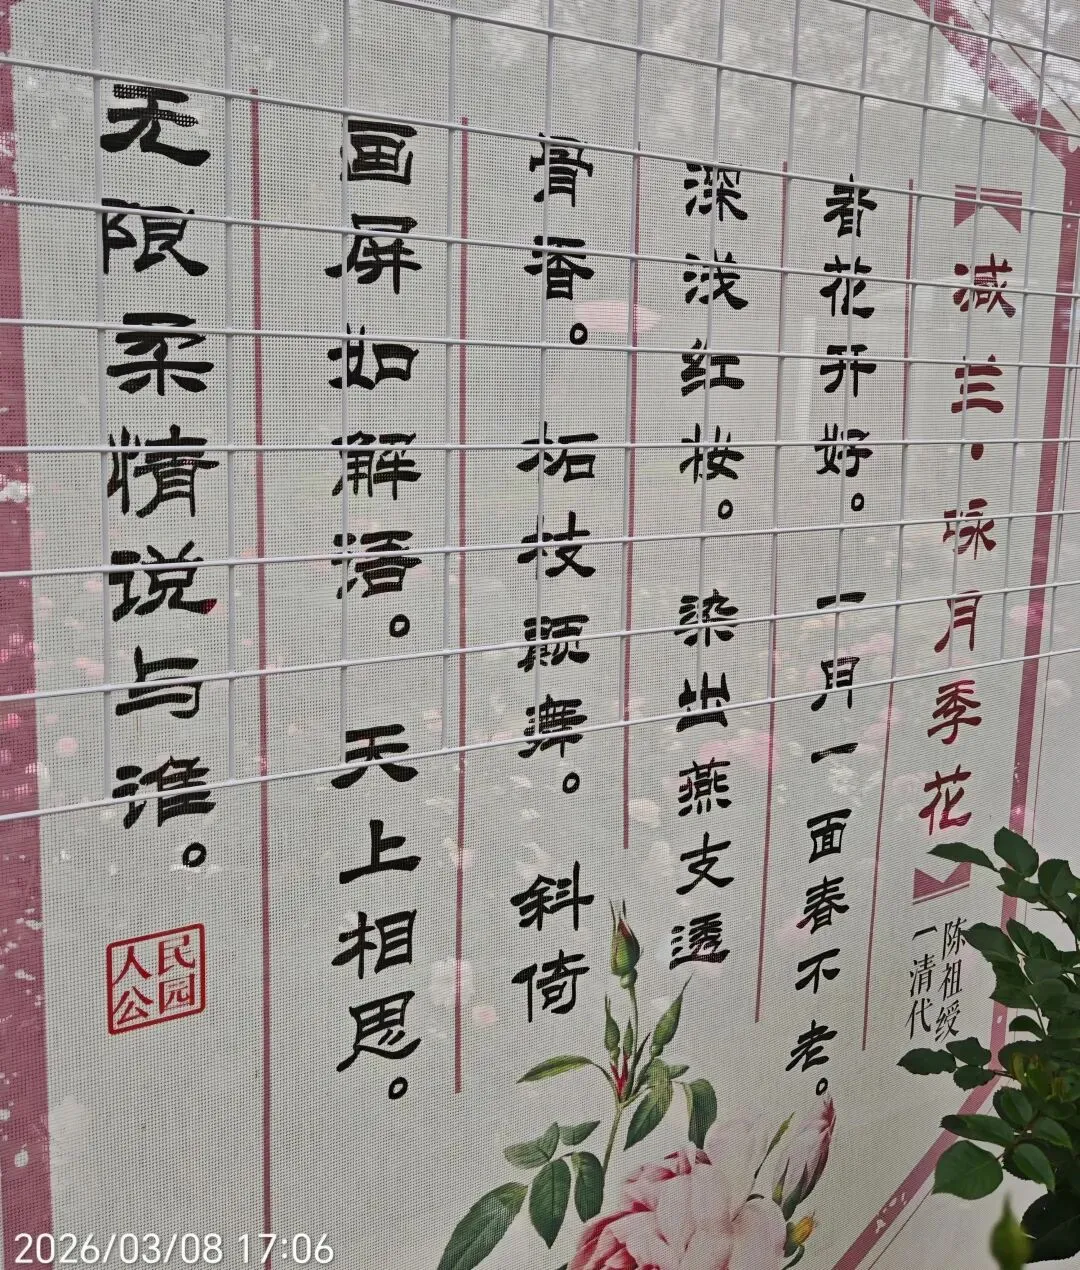 【减兰·咏月季花】
陈祖绶
一清代
看花开好。 一月一面春不老。
深浅红妆。 染出燕支透
骨香。 柘枝颠舞。 斜倚
画屏如解语。 天上相思。
无限柔情说与谁。
人民
公园
2026/03/08 17:06